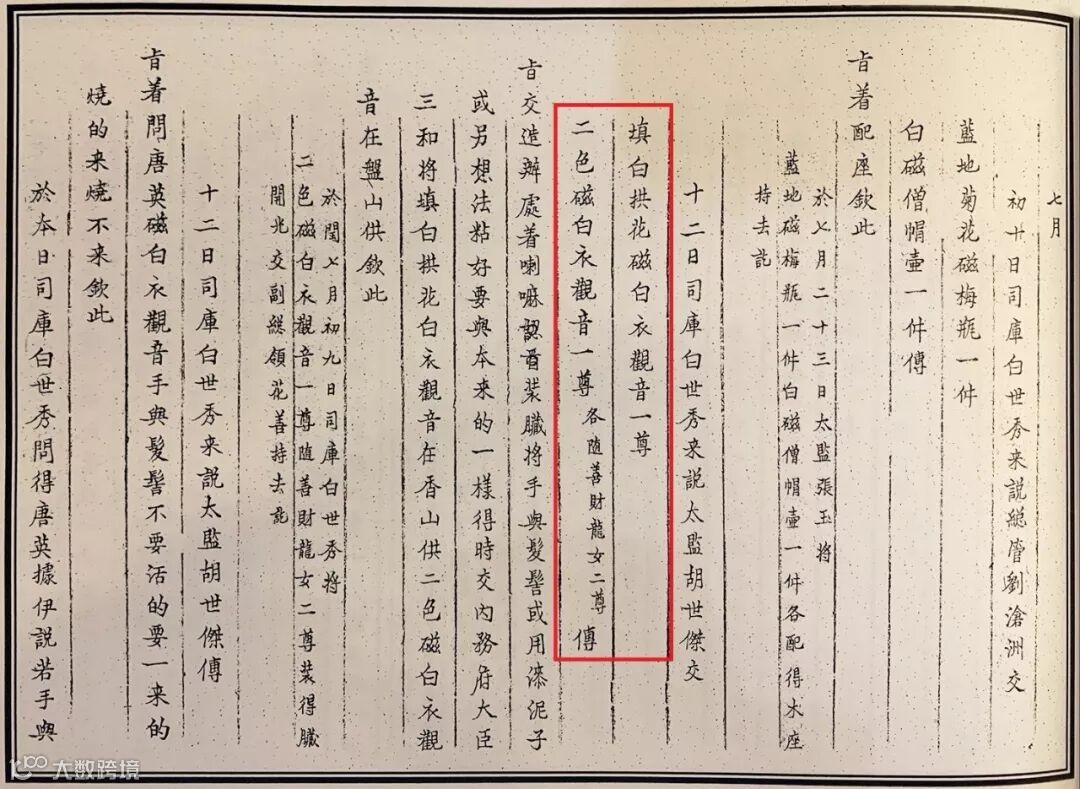 七月
初十日司庫白世秀来説總管劉滄洲交
藍地菊花磁梅瓶一件
白磁僧帽壺一件傳
旨着配座欽此
於七月二十三日太監張玉將
藍地磁梅瓶一件白磁僧帽壺一件各配得木座
持去訖
十二日司庫白世秀来説太監胡世傑交
填白拱花磁白衣觀音一尊
二色磁白衣觀音一尊各随善財龍女二尊傳
旨交造辦處着喇嘛認看装臟將手與髮髻或用漆泥子
或另想法粘好要與本来的一樣得時交内務府大臣
三和將填白拱花白衣觀音在香山供二色磁白衣觀
音在盤山供欽此
於閏七月初九日司庫白世秀將
二色磁白衣觀音一尊随善財龍女二尊装得臟
開光交副總領花善持去訖
十二日司庫白世秀来説太監胡世傑傳
旨着問唐英磁白衣觀音手與髮髻不要活的要一来的
燒的来燒不来欽此
於本日司庫白世秀問得唐英據伊説若手與
大数跨境